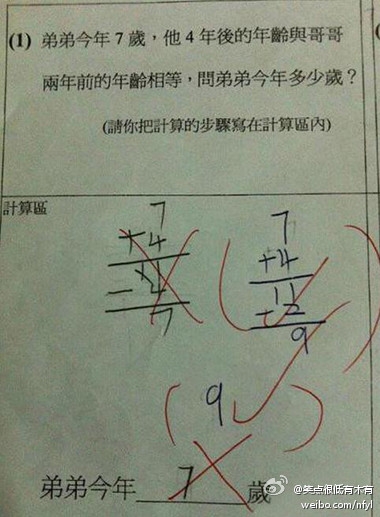 (1) 弟弟今年7歲，他4年後的年齡與哥哥
兩年前的年齡相等，問弟弟今年多少歲？
(請你把計算的步驟寫在計算區內)
計算區
7
+4
11
-4
7
7
+4
11
-2
9
(9)
弟弟今年 7 歲。
@笑点很低有木有
weibo.com/nfyl